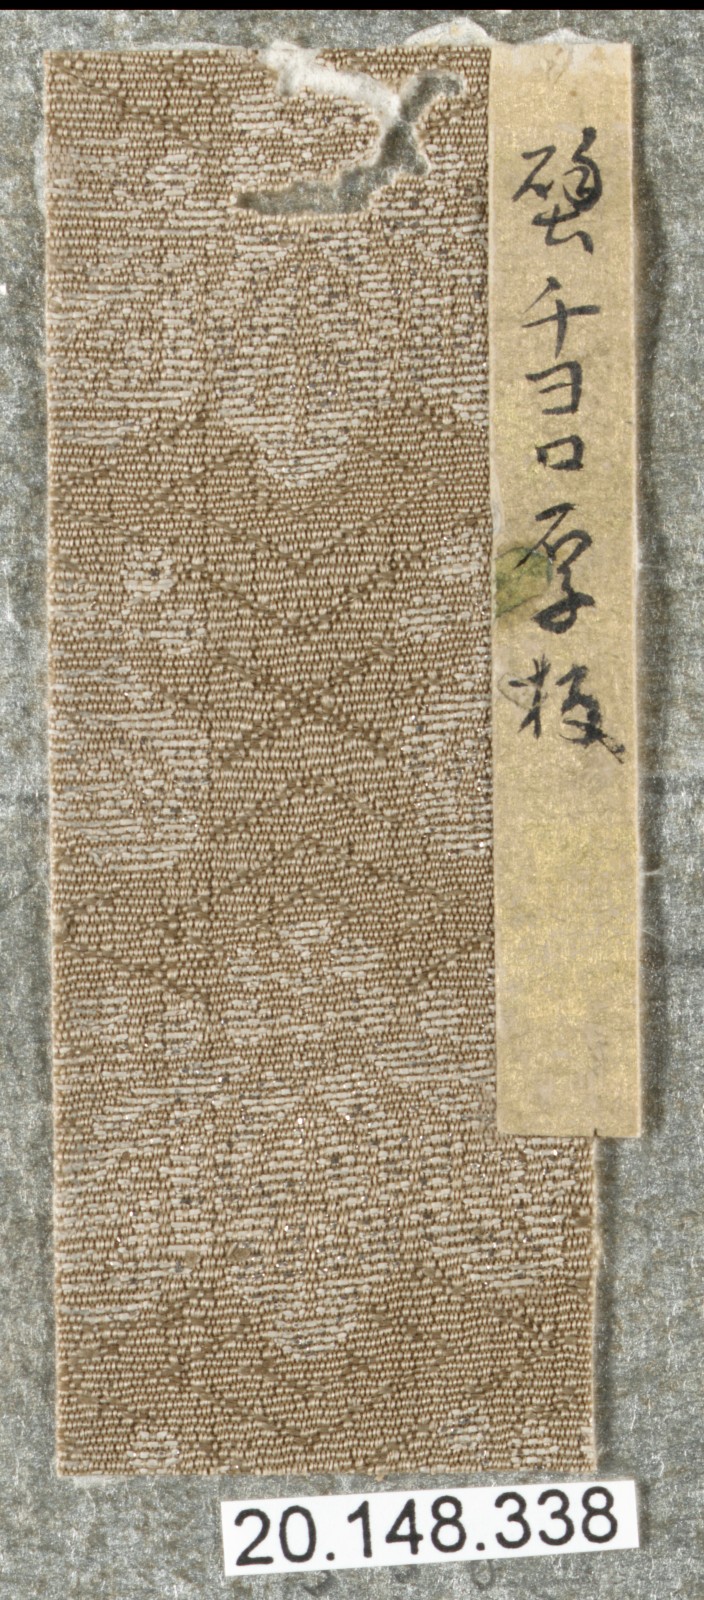 壁チヨロ厚板
20.148.338